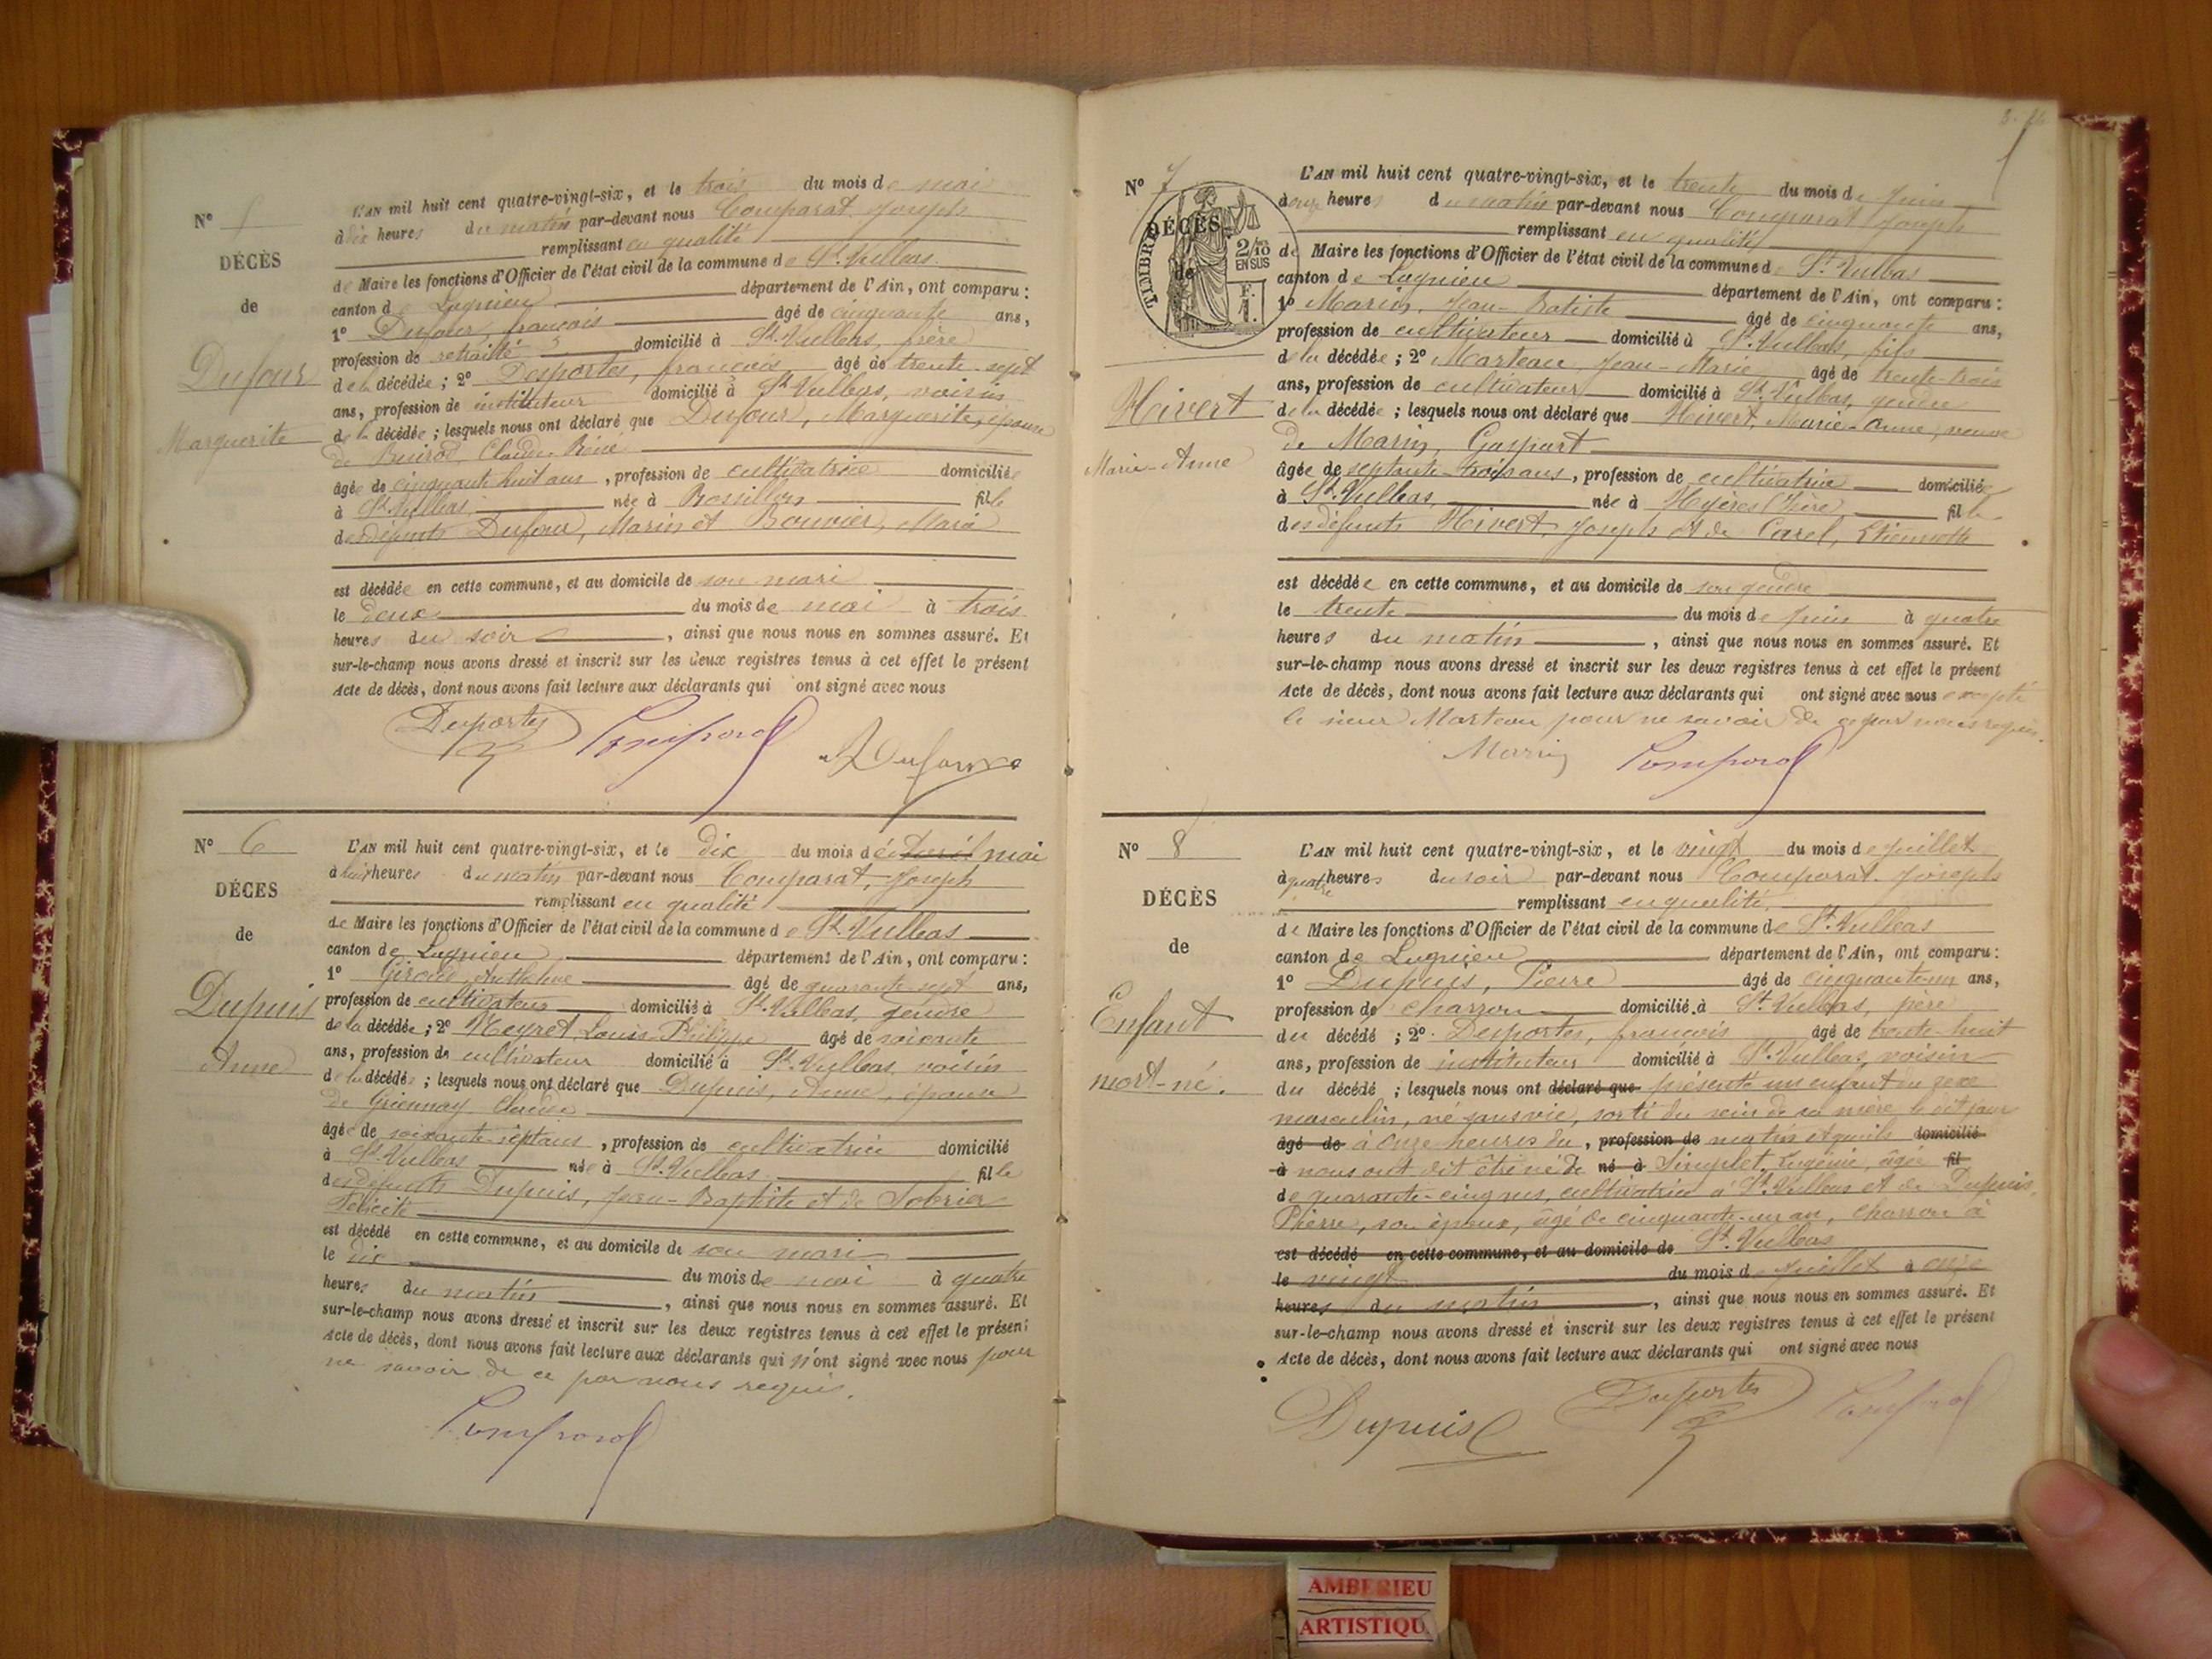 N° 5
DÉCÈS
de
Dufour
Marguerite
L'AN mil huit cent quatre-vingt-six, et le trois du mois de mai
à dix heures du matin par-devant nous Comparat, Joseph
remplissant en qualité
de Maire les fonctions d'Officier de l'état civil de la commune de St. Vulbas
canton de Lagnieu département de l'Ain, ont comparu :
1° Dufour, françois âgé de cinquante ans,
profession de retraité domicilié à St. Vulbas, frère
de la décédée ; 2° Desportes, françois âgé de trente-sept
ans, profession de instituteur domicilié à St. Vulbas, voisin
de la décédée ; lesquels nous ont déclaré que Dufour, Marguerite, épouse
de Buirod, Claude, Réné
âgée de cinquante huit ans, profession de cultivatrice domiciliée
à St. Vulbas née à Rossillon fille
des défunts Dufour, Marin et Bouvier, Marie
est décédée en cette commune, et au domicile de son mari
le deux du mois de mai à trois
heures du soir, ainsi que nous nous en sommes assuré. Et
sur-le-champ nous avons dressé et inscrit sur les deux registres tenus à cet effet le présent
Acte de décès, dont nous avons fait lecture aux déclarants qui ont signé avec nous
Desportes Comparat Dufour
N° 6
DÉCES
de
Dupuis
Anne
L'AN mil huit cent quatre-vingt-six, et le dix du mois de mai
à huit heures du matin par-devant nous Comparat, Joseph
remplissant en qualité
de Maire les fonctions d'Officier de l'état civil de la commune de St. Vulbas
canton de Lagnieu département de l'Ain, ont comparu :
1° Girodé, Anthelme âgé de quarante sept ans,
profession de cultivateur domicilié à St. Vulbas, gendre
de la décédée ; 2° Meyret, Louis-Philippe âgé de soixante
ans, profession de cultivateur domicilié à St. Vulbas, voisin
de la décédée ; lesquels nous ont déclaré que Dupuis, Anne, épouse
de Griennay, Claude
âgée de soixante-sept ans, profession de cultivatrice domicilié
à St. Vulbas née à St. Vulbas fille
des défunts Dupuis, Jean-Baptiste et de Sobrier
Félicité
est décédé en cette commune, et au domicile de son mari
le dix du mois de mai à quatre
heures du matin, ainsi que nous nous en sommes assuré. Et
sur-le-champ nous avons dressé et inscrit sur les deux registres tenus à cet effet le présent
Acte de décès, dont nous avons fait lecture aux déclarants qui n'ont signé avec nous pour
ne savoir de ce par nous requis.
Comparat
N° 7
DÉCÈS
de
TIMBRE
2/10 EN SUS
F. 1.
Hivert
Marie-Anne
L'AN mil huit cent quatre-vingt-six, et le trente du mois de juin
à onze heures du matin par-devant nous Comparat Joseph
remplissant en qualité
de Maire les fonctions d'Officier de l'état civil de la commune de St. Vulbas
canton de Lagnieu département de l'Ain, ont comparu :
1° Marin, Jean-Batiste âgé de cinquante ans,
profession de cultivateur domicilié à St. Vulbas, fils
de la décédée ; 2° Marteau, Jean-Marie âgé de trente-trois
ans, profession de cultivateur domicilié à St. Vulbas, gendre
de la décédée ; lesquels nous ont déclaré que Hivert, Marie-Anne, veuve
de Marin, Gaspart
âgée de septante-trois ans, profession de cultivatrice domicilié
à St. Vulbas, née à Hyères (Isère) fille
des défunts Hivert, Joseph et de Carel, Etiennette
est décédée en cette commune, et au domicile de son gendre
le trente du mois de juin à quatre
heures du matin, ainsi que nous nous en sommes assuré. Et
sur-le-champ nous avons dressé et inscrit sur les deux registres tenus à cet effet le présent
Acte de décès, dont nous avons fait lecture aux déclarants qui ont signé avec nous excepté
le sieur Marteau pour ne savoir de ce par nous requis.
Marin Comparat
N° 8
DÉCÈS
de
Enfant
mort-né.
L'AN mil huit cent quatre-vingt-six, et le vingt du mois de juillet
à quatre heures du soir par-devant nous Comparat Joseph
remplissant en qualité
de Maire les fonctions d'Officier de l'état civil de la commune de St. Vulbas
canton de Lagnieu département de l'Ain, ont comparu :
1° Dupuis, Pierre âgé de cinquante-un ans,
profession de charron domicilié à St. Vulbas, père
du décédé ; 2° Desportes, françois âgé de trente-huit
ans, profession de instituteur domicilié à St. Vulbas, voisin
du décédé ; lesquels nous ont déclaré que présenté un enfant du sexe
masculin, né sans vie, sorti du sein de sa mère le dit jour
âgé de à onze heures du, profession de matin et qu'ils domicilié
à nous ont dit être né de né à Simplet, Eugénie, âgée fil
de quarante-cinq ans, cultivatrice à St. Vulbas et de Dupuis,
Pierre, son époux, âgé de cinquante-un an, charron à
est décédé en cette commune, et au domicile de St. Vulbas
le vingt du mois de juillet à onze
heures du matin, ainsi que nous nous en sommes assuré. Et
sur-le-champ nous avons dressé et inscrit sur les deux registres tenus à cet effet le présent
Acte de décès, dont nous avons fait lecture aux déclarants qui ont signé avec nous
Dupuis Desportes Comparat
AMBERIEU
ARTISTIQU